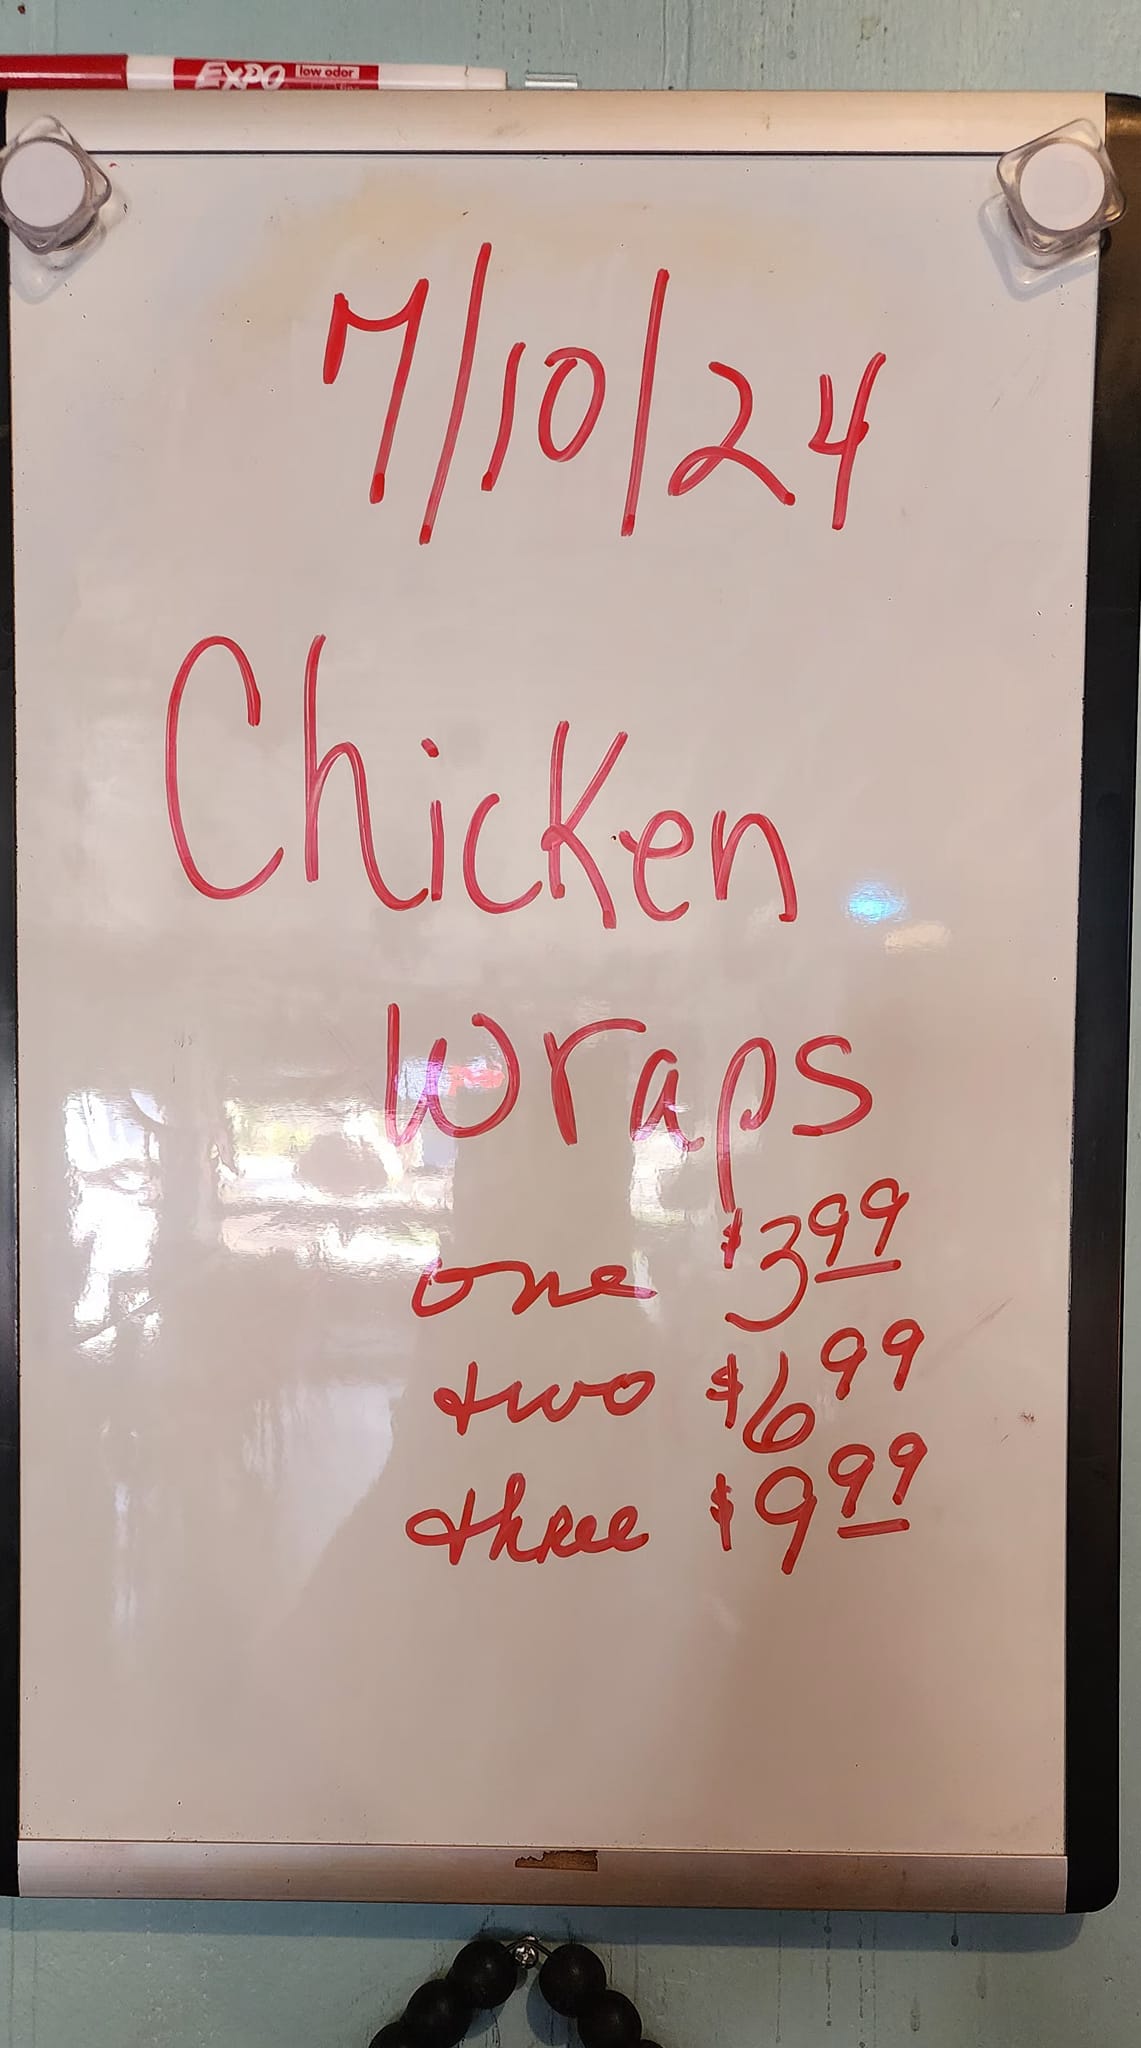 EXPO low odor
7/10/24
Chicken
wraps
one $3.99
two $6.99
three $9.99